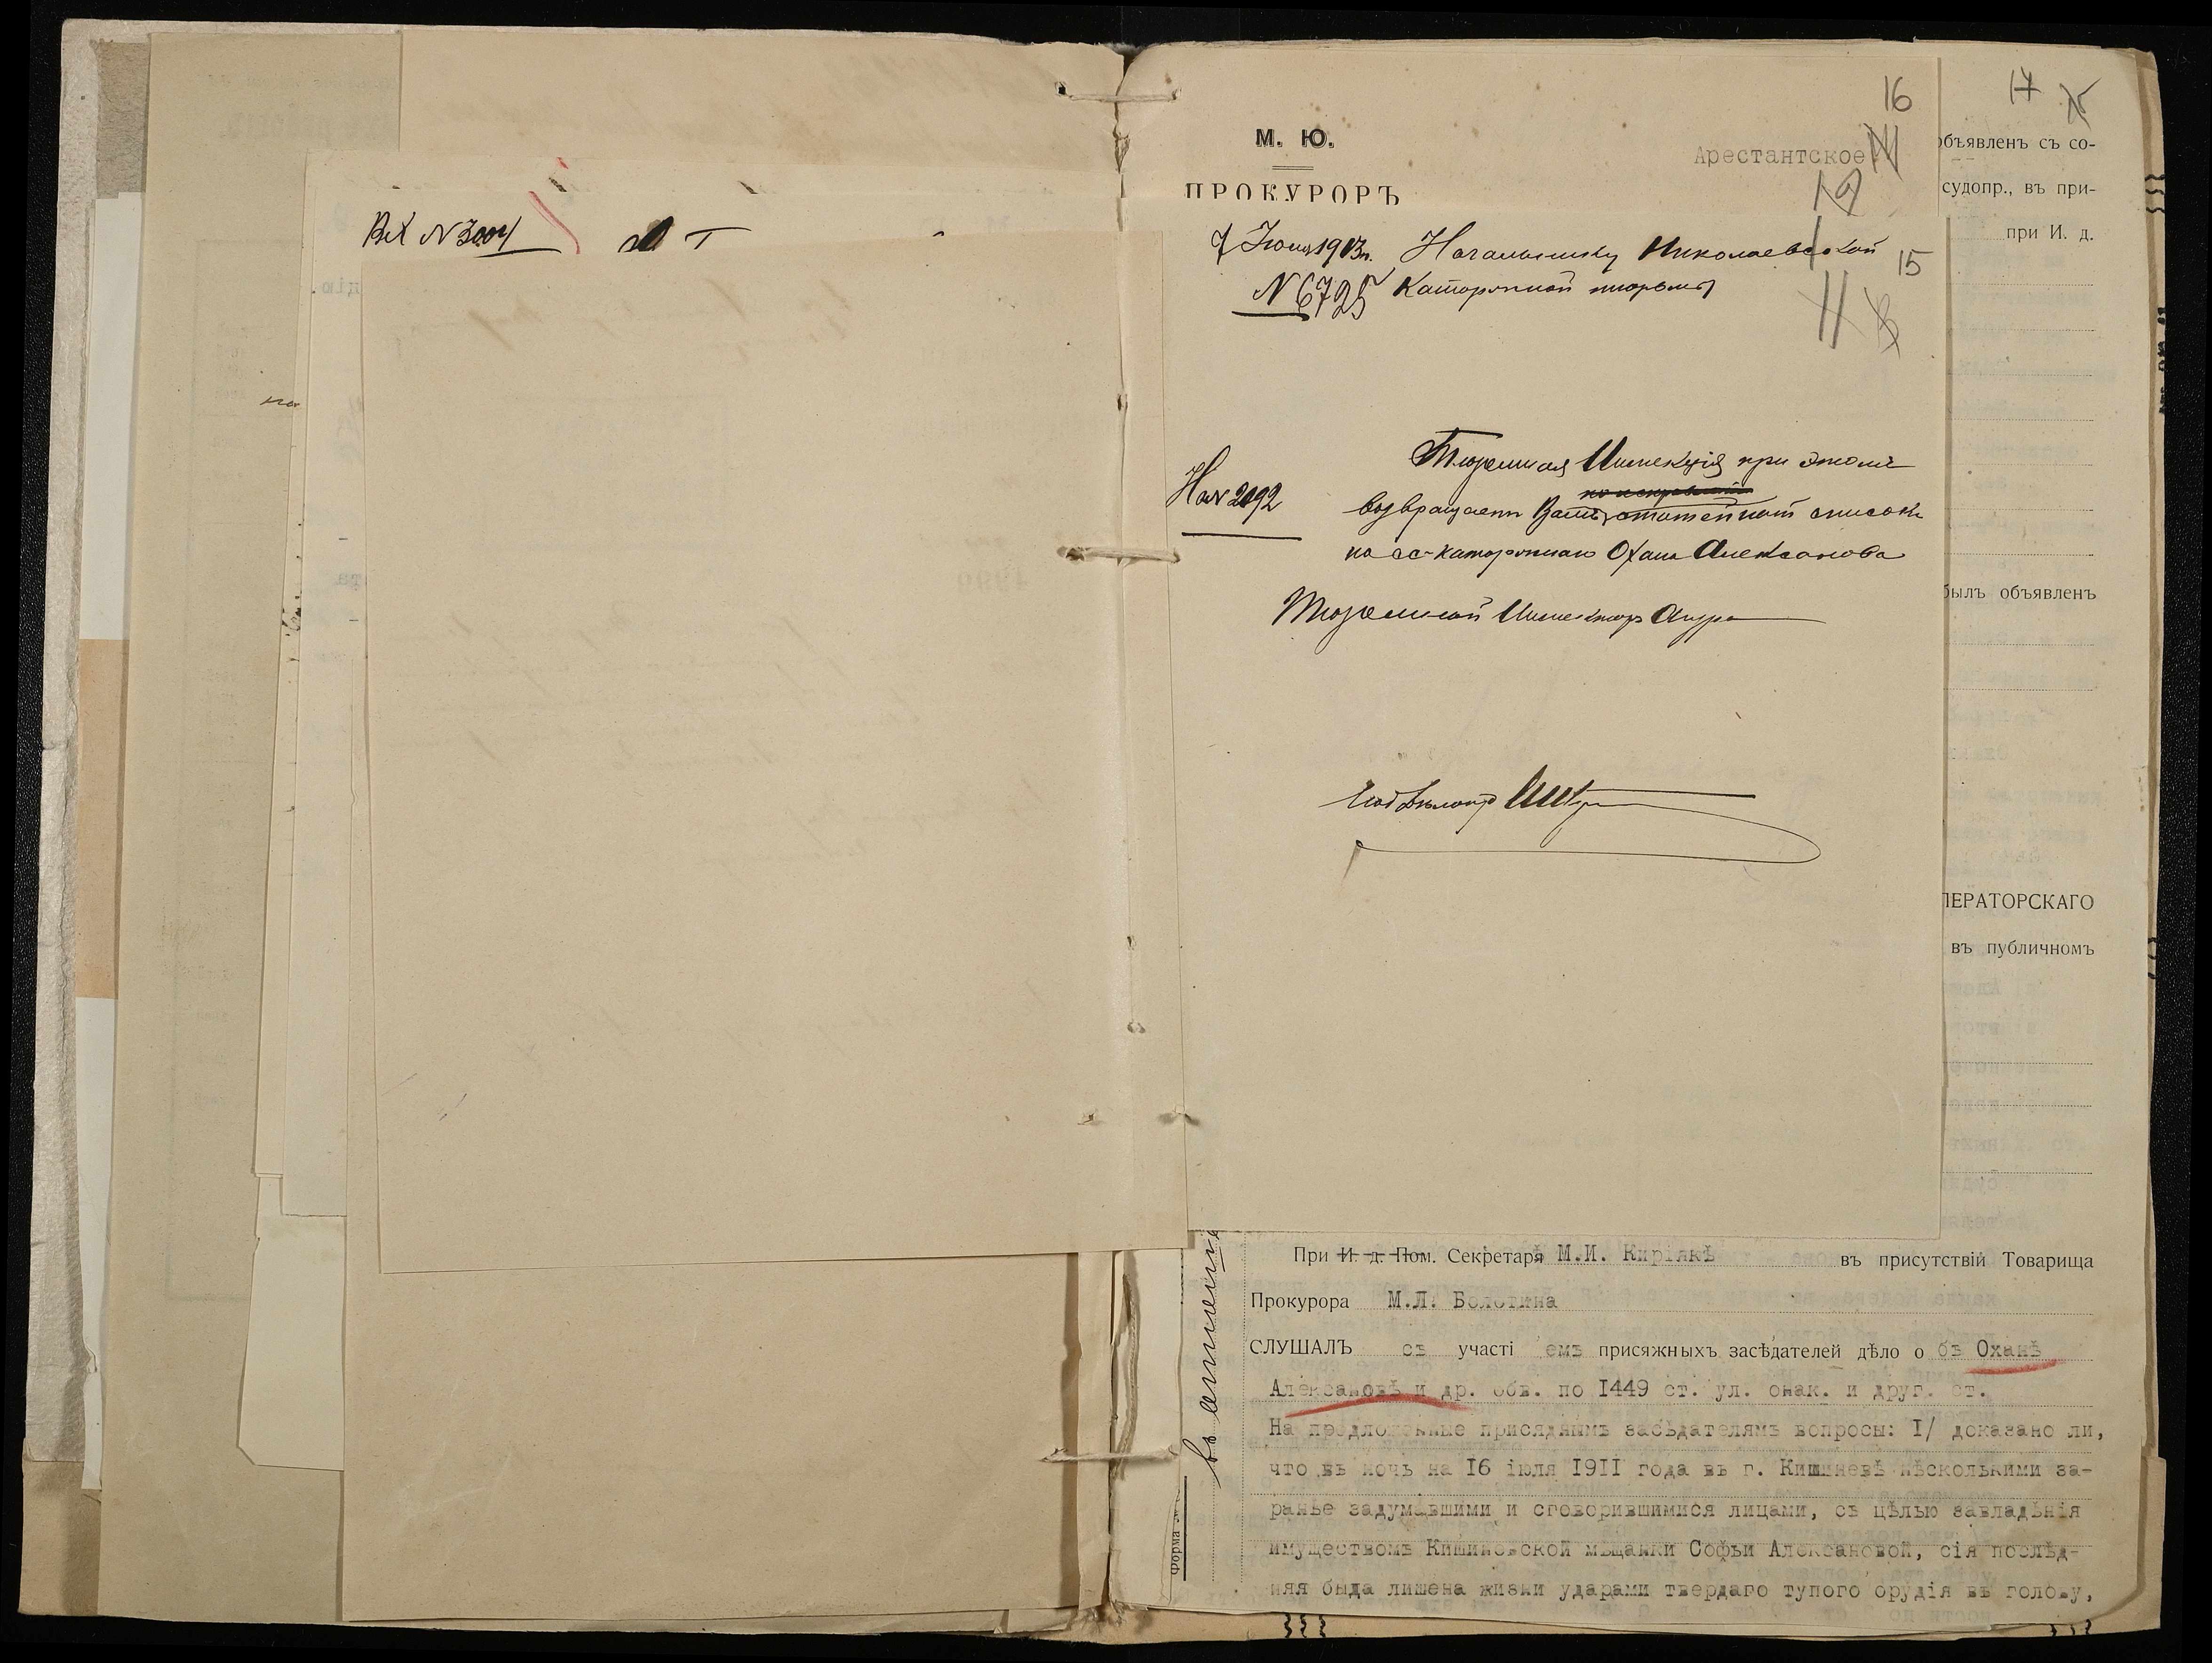 Вх N 3004
16
17
М. Ю.
Арестантское
ПРОКУРОРЪ
19
объявленъ съ со-
судопр., въ при-
при И. д.
7 Іюня 1913 г. Начальнику Николаевской
15
N 6725 Каторжной тюрьмы
11
На N 2092
Тюремная Инспекція при этомъ
возвращаетъ Вамъ статейный списокъ
на сс-каторжнаго Охана Алексанова
Тюремный Инспекторъ
былъ объявленъ
ПЕРАТОРСКАГО
въ публичномъ
При И. д. Пом. Секретаря М.И. Киріякѣ въ присутствіи Товарища
Прокурора М.Л. Болотина
СЛУШАЛЪ съ участі емъ присяжныхъ засѣдателей дѣло о бъ Оханѣ
Алексановѣ и др. обв. по 1449 ст. ул. онак. и друг. ст.
На предложенные присяднымъ засѣдателямъ вопросы: I/ доказано ли,
что въ ночь на 16 іюля 1911 года въ г. Кишиневѣ нѣсколькими за-
ранѣе задумавшими и сговорившимися лицами, съ цѣлью завладѣнія
имуществомъ Кишиневской мѣщанки Софьи Алексановой, сія послѣд-
няя быда лишена жизни ударами твердаго тупого орудія въ голову,
Форма